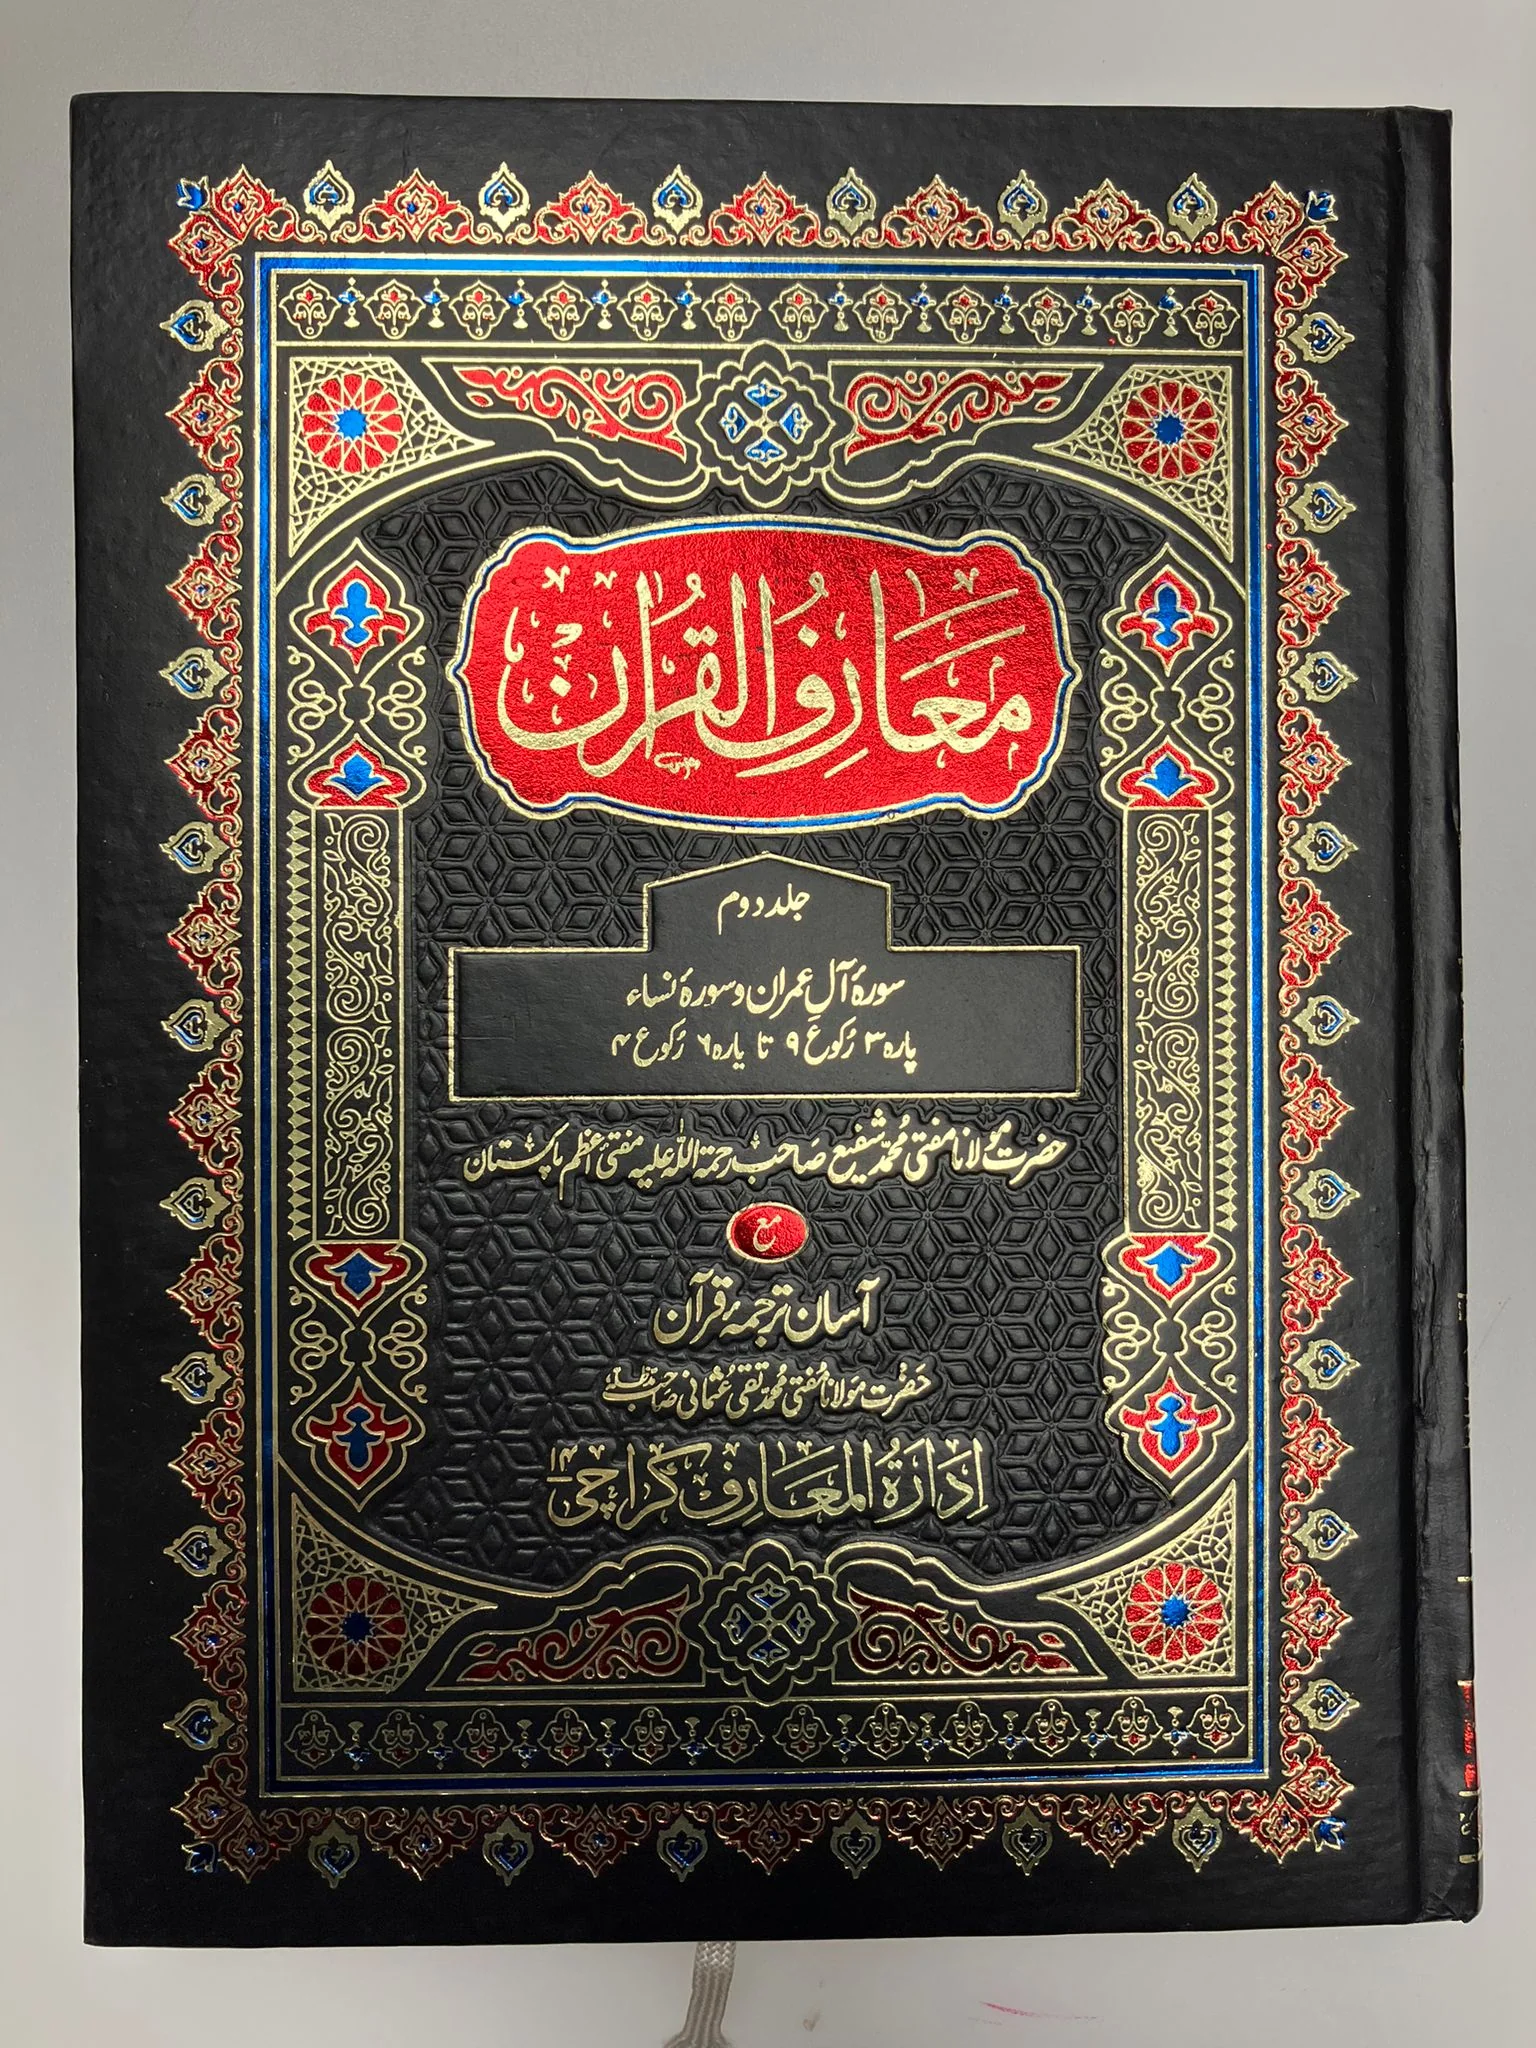 معارف القرآن
جلد دوم
سورۂ آلِ عمران و سورۂ نساء
پارہ ۳ رُکوع ۹ تا پارہ ۶ رُکوع ۴
حضرت مولانا مفتی محمد شفیع صاحب رحمۃ اللہ علیہ مفتیٔ اعظم پاکستان
مع
آسان ترجمۂ قرآن
حضرت مولانا مفتی محمد تقی عثمانی صاحب
ادارۃ المعارف کراچی ۱۴